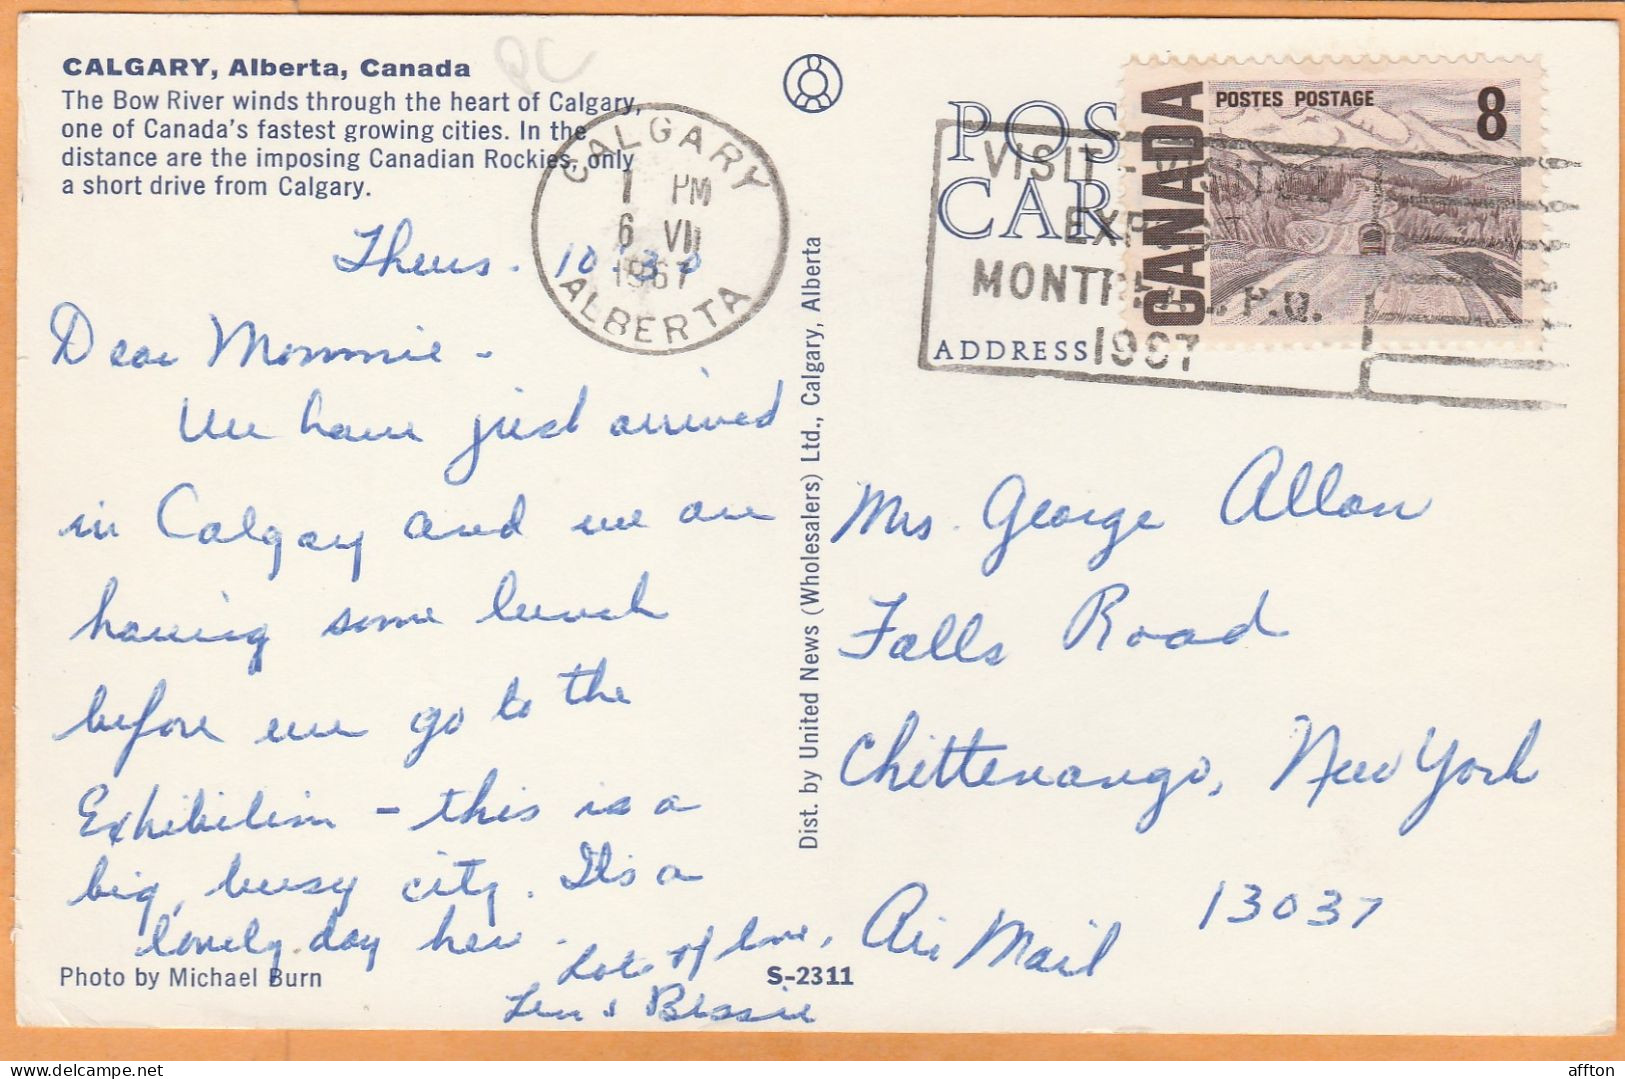 CALGARY, Alberta, Canada
The Bow River winds through the heart of Calgary,
one of Canada's fastest growing cities. In the
distance are the imposing Canadian Rockies, only
a short drive from Calgary.
Thurs. 10:30
Dear Mommie -
We have just arrived
in Calgary and we are
having some lunch
before we go to the
Exhibition - this is a
big, busy city. It's a
lovely day here.
Lots of love,
Len & Bessie
Photo by Michael Burn
S-2311
Dist. by United News (Wholesalers) Ltd., Calgary, Alberta
PC
CALGARY
1 PM
6 VII
1967
ALBERTA
POS
CAR
ADDRESS
VISIT
EXP
MONTREAL P.Q.
1967
CANADA
POSTES POSTAGE
8
Mrs. George Allan
Falls Road
Chittenango, New York
13037
Air Mail
affton